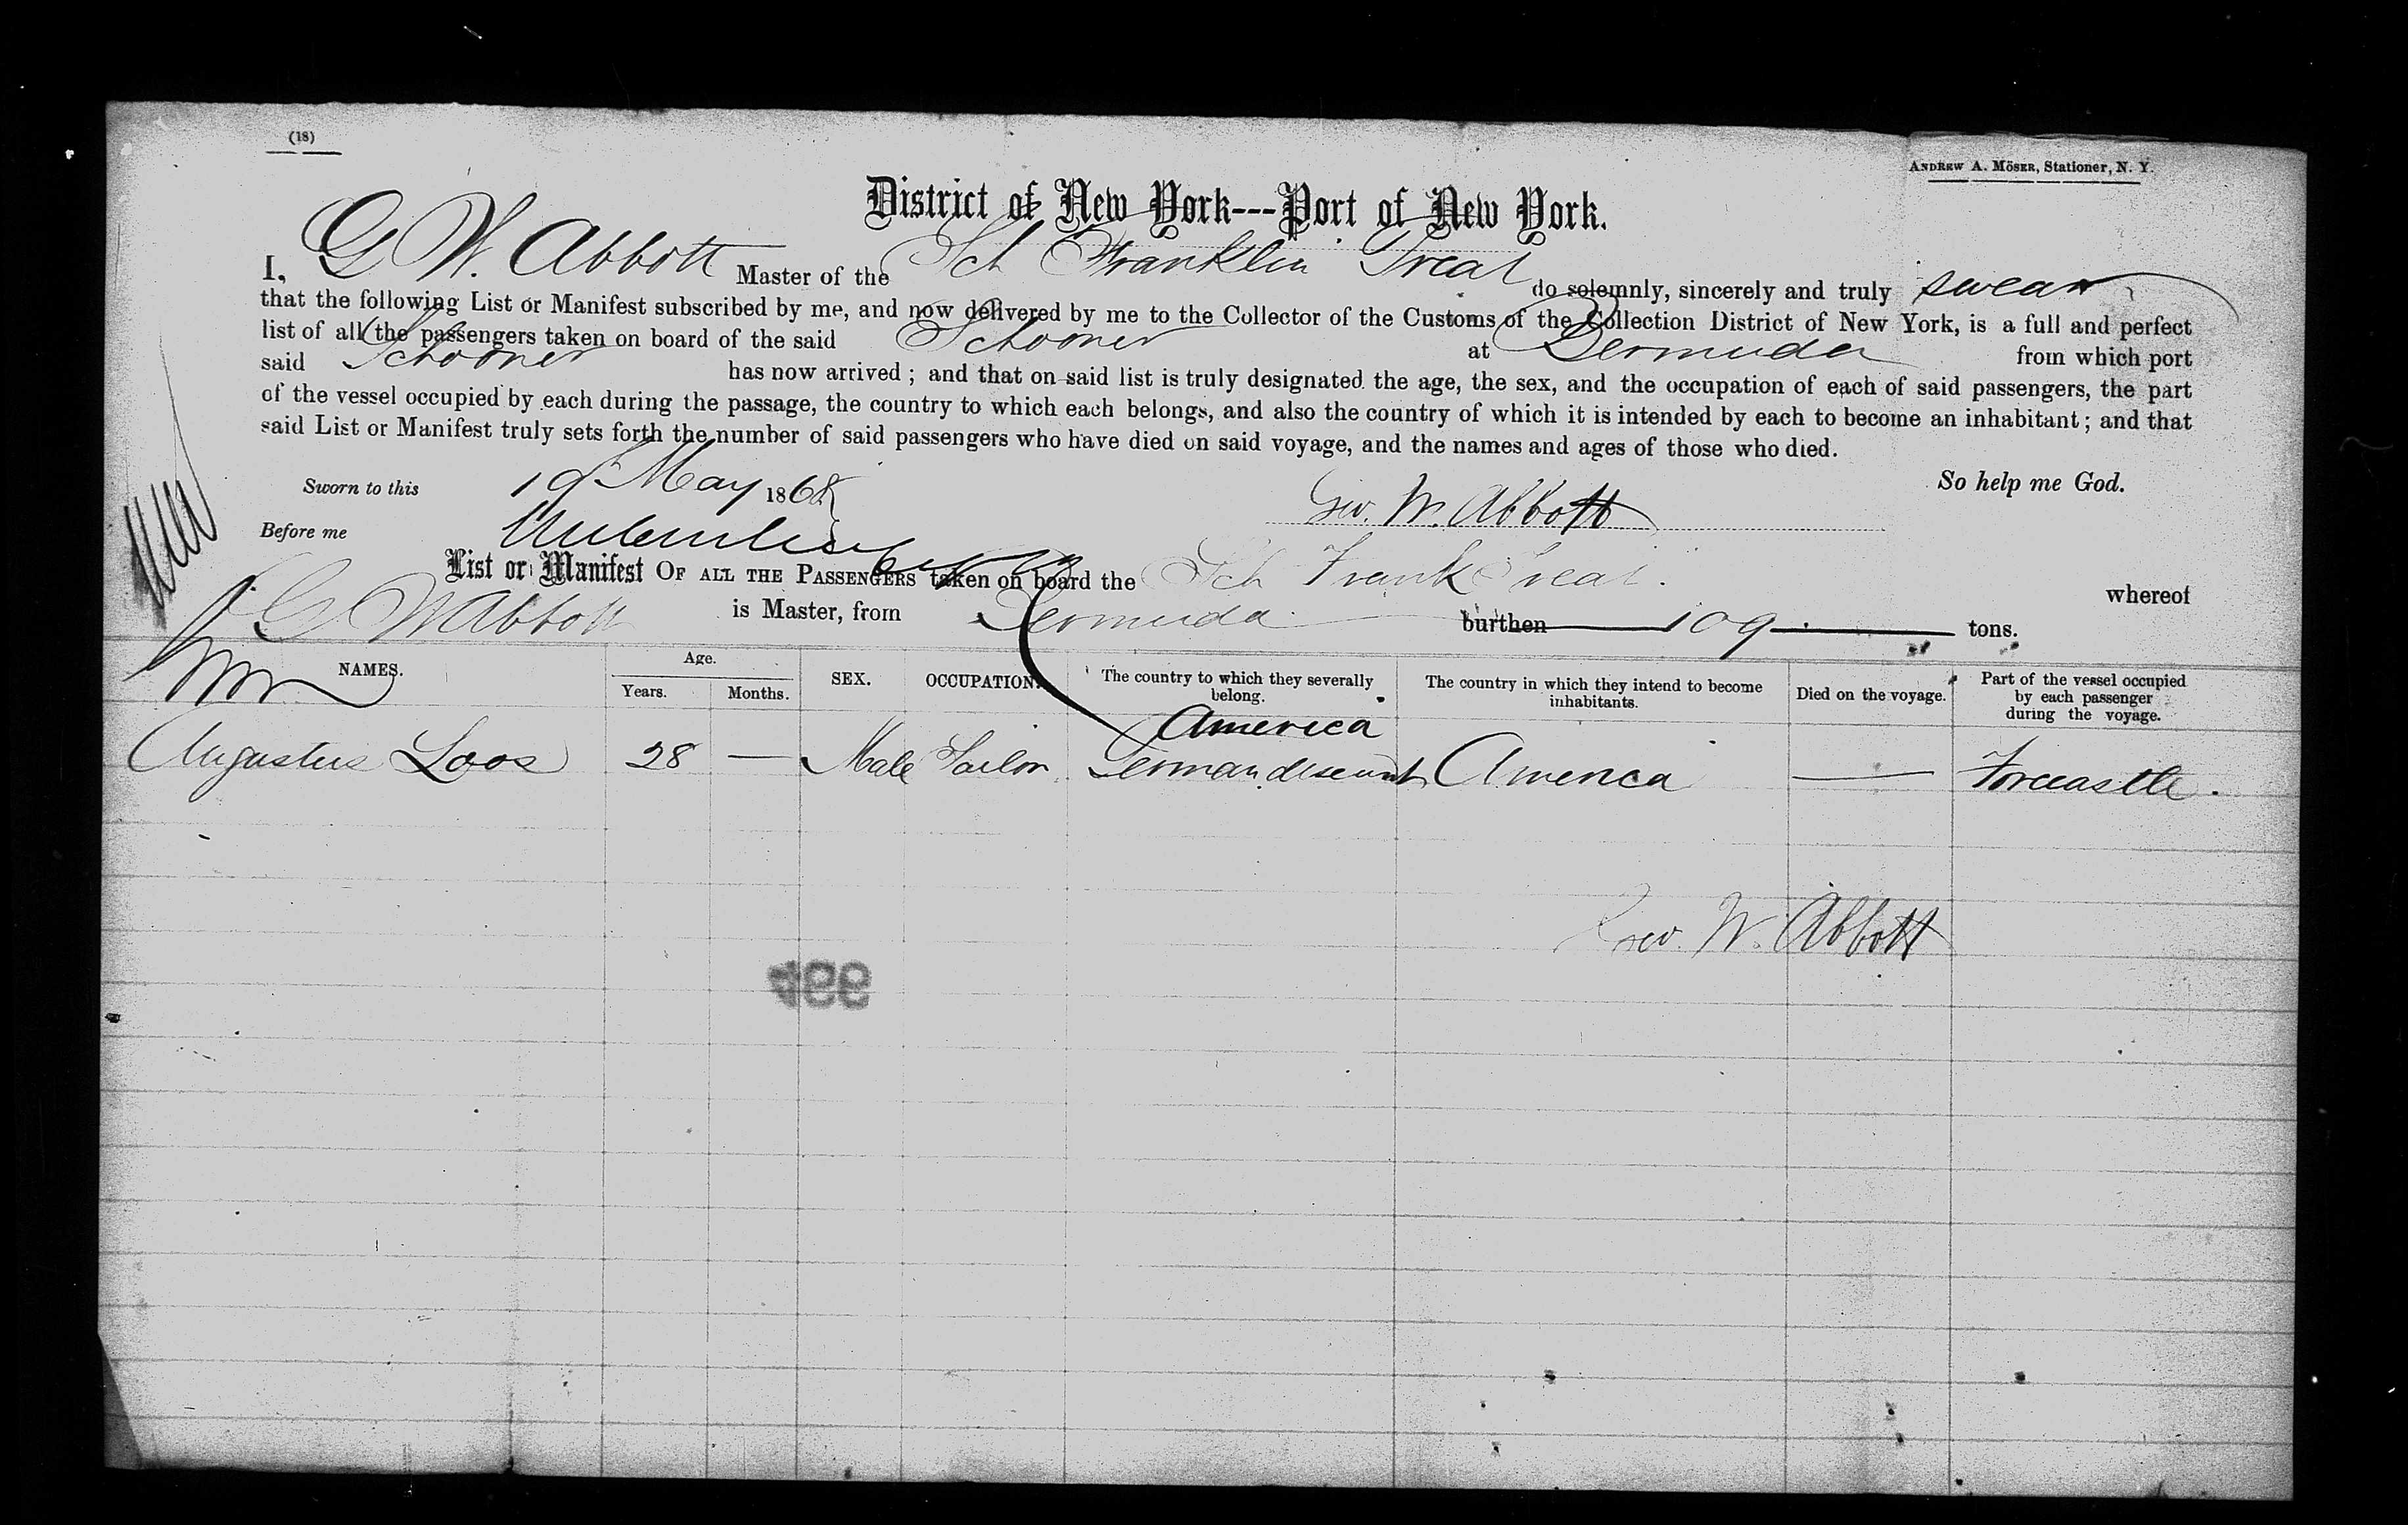 (18)
ANDREW A. MÖSER, Stationer, N. Y.
District of New York---Port of New York.
I, G W. Abbott Master of the Sch Franklin Treat do solemnly, sincerely and truly swear
that the following List or Manifest subscribed by me, and now delivered by me to the Collector of the Customs of the Collection District of New York, is a full and perfect
list of all the passengers taken on board of the said Schooner at Bermuda from which port
said Schooner has now arrived; and that on said list is truly designated the age, the sex, and the occupation of each of said passengers, the part
of the vessel occupied by each during the passage, the country to which each belongs, and also the country of which it is intended by each to become an inhabitant; and that
said List or Manifest truly sets forth the number of said passengers who have died on said voyage, and the names and ages of those who died.
So help me God.
Sworn to this 19 May 1868
Geo. W. Abbott
Before me
List or Manifest OF ALL THE PASSENGERS taken on board the Sch Frank Treat. whereof
G W Abbott is Master, from Bermuda burthen 109 tons.
NAMES. Age. Years. Months. SEX. OCCUPATION. The country to which they severally belong. The country in which they intend to become inhabitants. Died on the voyage. Part of the vessel occupied by each passenger during the voyage.
America
Augustus Loos 28 — Male Sailor German descent America — Forecastle.
Geo. W. Abbott
499